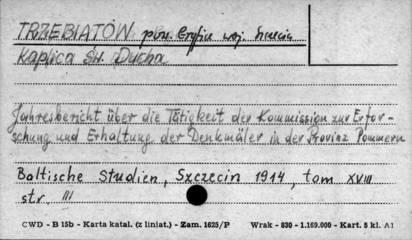 TRZEBIATÓW pow. Gryfice woj. Szczecin
Kaplica św. Ducha
Jahresbericht über die Tätigkeit der Kommission zur Erfor-
schung und Erhaltung der Denkmäler in der Provinz Pommern
Baltische Studien, Szczecin 1914, tom XVIII
str. III
CWD - B 15b - Karta katal. (z liniat.) - Zam. 1625/P Wrak - 830 - 1.169.000 - Kart. 5 kl. A1